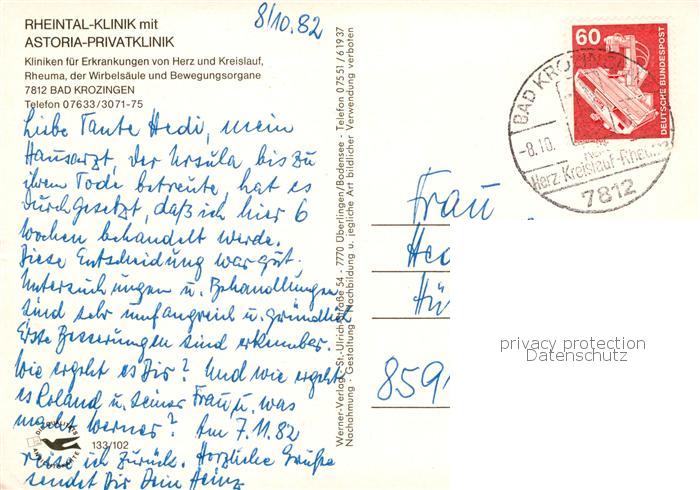 RHEINTAL-KLINIK mit
ASTORIA-PRIVATKLINIK
Kliniken für Erkrankungen von Herz und Kreislauf,
Rheuma, der Wirbelsäule und Bewegungsorgane
7812 BAD KROZINGEN
Telefon 07633/3071-75
8/10.82
Liebe Tante Hedi, mein
Hausarzt, der Ursula bis zu
ihrem Tode betreute, hat es
durchgesetzt, daß ich hier 6
Wochen behandelt werde.
Diese Entscheidung war gut.
Untersuchungen u. Behandlungen
sind sehr umfangreich u. gründlich
Erste Besserungen sind erkennbar.
Wie ergeht es Dir? Und wie ergeht
es Roland u. seiner Frau u. was
macht Werner? Am 7.11.82
reise ich zurück. Herzliche Grüße
sendet Dir Dein Heinz
133/102
Werner-Verlag - St.-Ulrich-Straße 54 - 7770 Überlingen/Bodensee - Telefon 07551/61937
Nachahmung - Gestaltung - Nachbildung u. jegliche Art bildlicher Verwendung verboten
60
DEUTSCHE BUNDESPOST
BAD KROZINGEN
-8.10.
Herz-Kreislauf-Rheuma
7812
Frau
He
Hü
859
privacy protection
Datenschutz